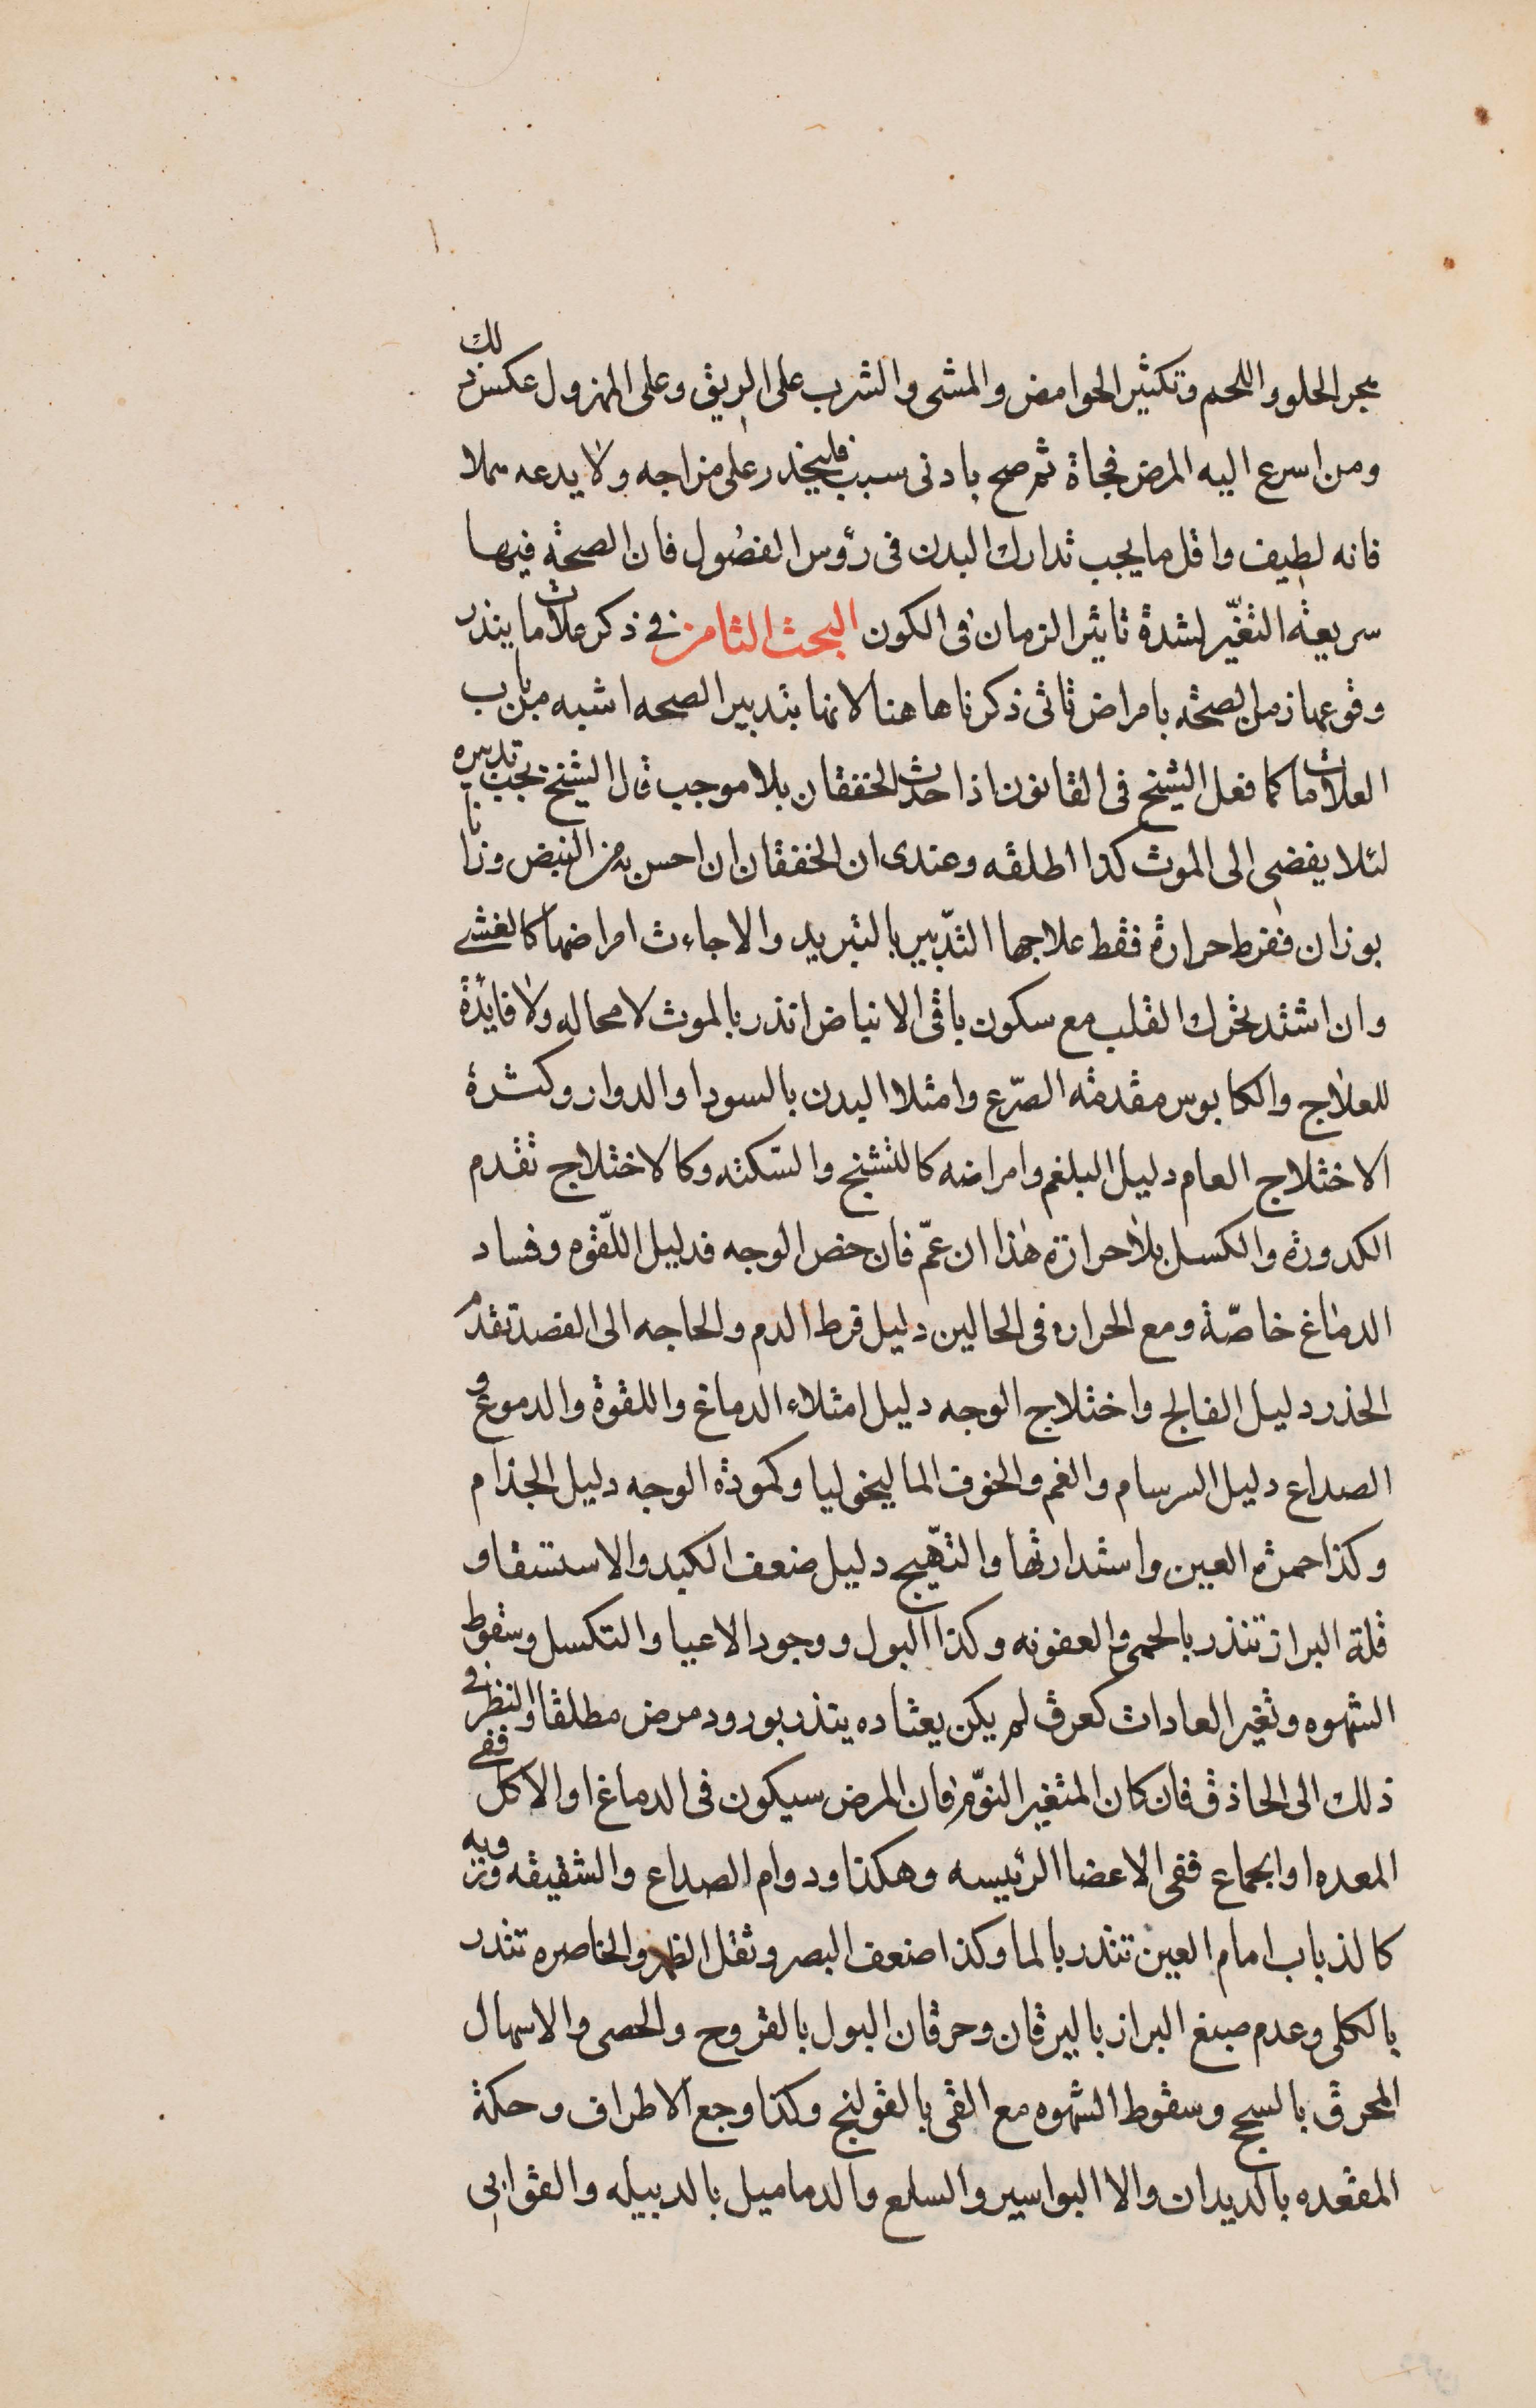 هجر الحلو واللحم وتكثير الحوامض والمشى والشرب على الريق وعلى المهزول عكس ذلك
ومن اسرع اليه المرض فجاة ثم صح بادنى سبب فليحذر على مزاجه ولا يدعه هملا
فانه لطيف واقل ما يجب تدارك البدن فى رؤس الفصول فان الصحة فيها
سريعة التغيّر لشدة تاثير الزمان فى الكون البحث الثامن فى ذكر علامات ما ينذر
وقوعها زمن الصحة بامراض تاتى ذكرناها هنا لانها بتدبير الصحه اشبه من باب
العلامات كما فعل الشيخ فى القانون اذا حدث الخفقان بلا موجب قال الشيخ يجب تدبيره
لئلا يفضى الى الموت كذا اطلقه وعندى ان الخفقان ان احس به من النبض وزنا
بوزان ففرط حرارة فقط علاجها التدبير بالتبريد والا جاءت امراضها كالغشى
وان اشتد تحرك القلب مع سكون باقى الانباض انذر بالموت لا محاله ولا فايدة
للعلاج والكابوس مقدمة الصّرع وامتلا البدن بالسودا والدوار وكثرة
الاختلاج العام دليل البلغم وامراضه كالتشنج والسّكته وكالاختلاج تقدم
الكدورة والكسل بلا حرارة هذا ان عمّ فان خص الوجه فدليل اللّقوه وفساد
الدماغ خاصّة ومع الحراره فى الحالين دليل فرط الدم والحاجه الى الفصد تقدم
الخدر دليل الفالج واختلاج الوجه دليل امتلاء الدماغ واللقوة والدموع و
الصداع دليل السرسام والغم والخوف الماليخوليا وكمودة الوجه دليل الجذام
وكذا حمرة العين واستدارتها والتهّيج دليل ضعف الكبد والاستسقا و
قلة البراز تنذر بالحمى والعفونه وكذا البول ووجود الاعيا والتكسل وسقوط
الشهوه وتغير العادات كعرق لم يكن يعتاده ينذر بورود مرض مطلقا والنظر فى
ذلك الى الحاذق فان كان المتغير النوّم فان المرض سيكون فى الدماغ او الاكل ففى
المعده او الجماع ففى الاعضا الرئيسه وهكذا ودوام الصداع والشقيقه ورؤيه
كالذباب امام العين تنذر بالما وكذا ضعف البصر وثقل الظهر والخاصره تنذر
بالكلى وعدم صبغ البراز باليرقان وحرقان البول بالقروح والحصى والاسهال
المحرق بالسحج وسقوط الشهوه مع القى بالقولنج وكذا وجع الاطراف وحكة
المقعده بالديدان والا البواسير والسلع والدماميل بالدبيله والقوابى